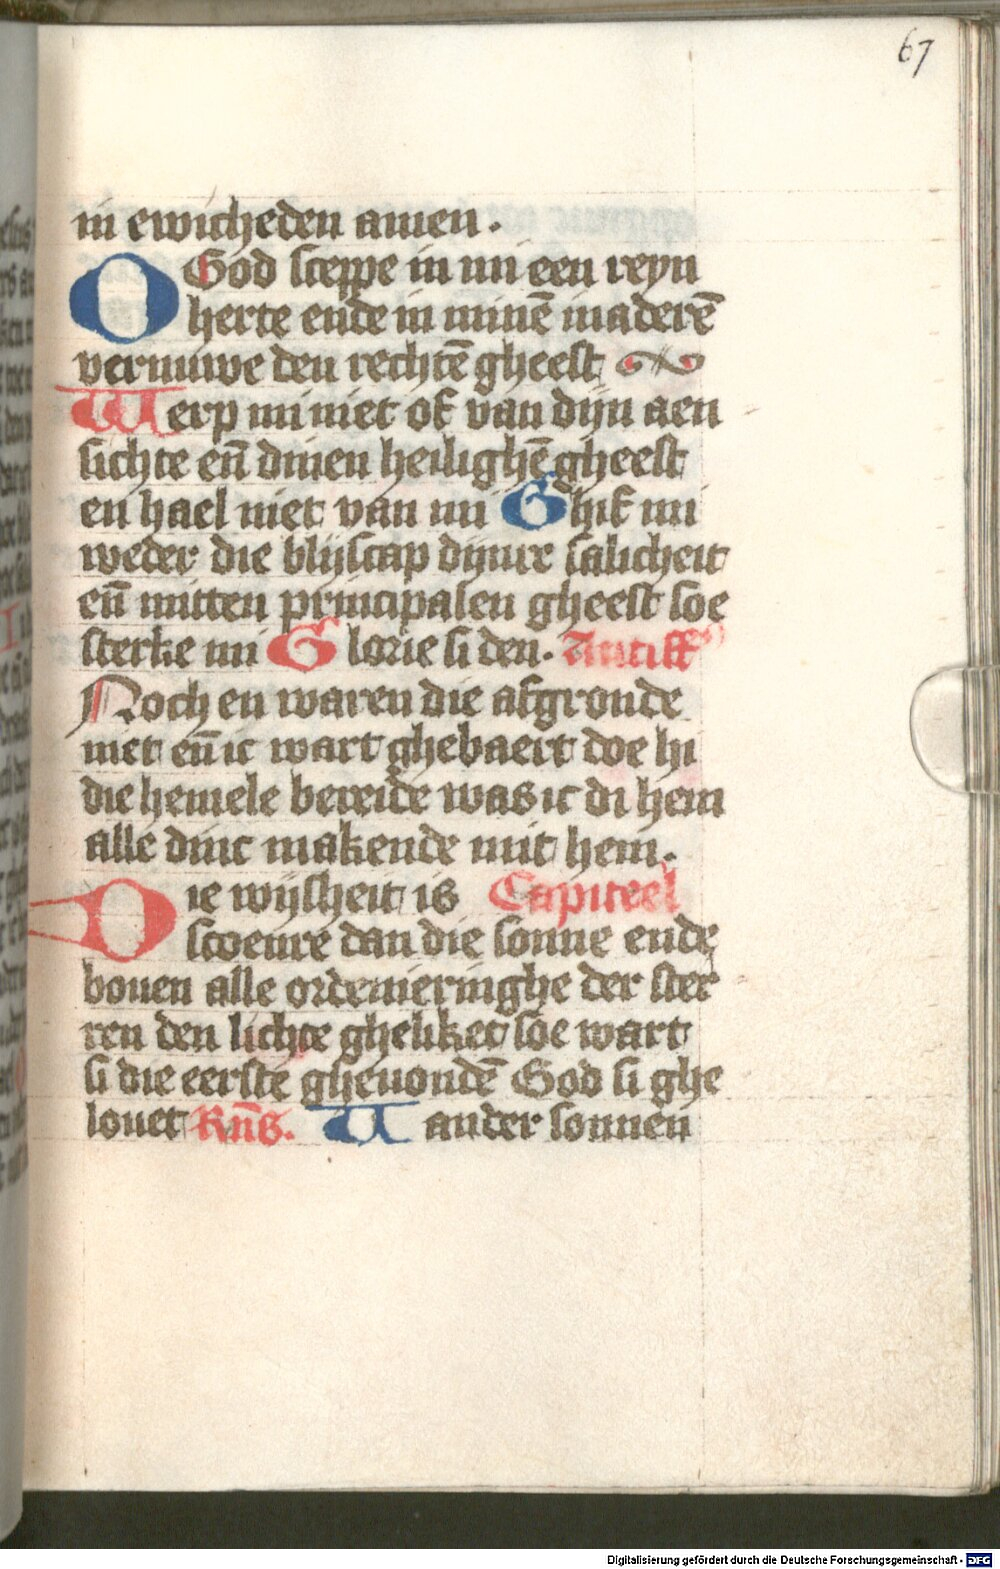 67
in ewicheden amen.
O God sceppe in mi een reyn
herte ende in minē inaderē
vernuwe den rechtē gheest
Werp mi niet of van dijn aen
sichte en̄ dinen heilighē gheest
en hael niet van mi Ghif mi
weder die blijscap dijnre salicheit
en̄ mitten principalen gheest soe
sterke mi Glorie si den. Antiff
Noch en waren die afgronde
niet en̄ ic wart ghebaert doe hi
die hemele bereide was ic bi hem
alle dinc makende mit hem.
Die wijsheit is Capiteel
scoenre dan die sonne ende
bouen alle ordenieringhe der ster
ren den lichte gheliket soe wart
si die eerste gheuondē God si ghe
louet Rn̄s. Uander sonnen
Digitalisierung gefördert durch die Deutsche Forschungsgemeinschaft - DFG